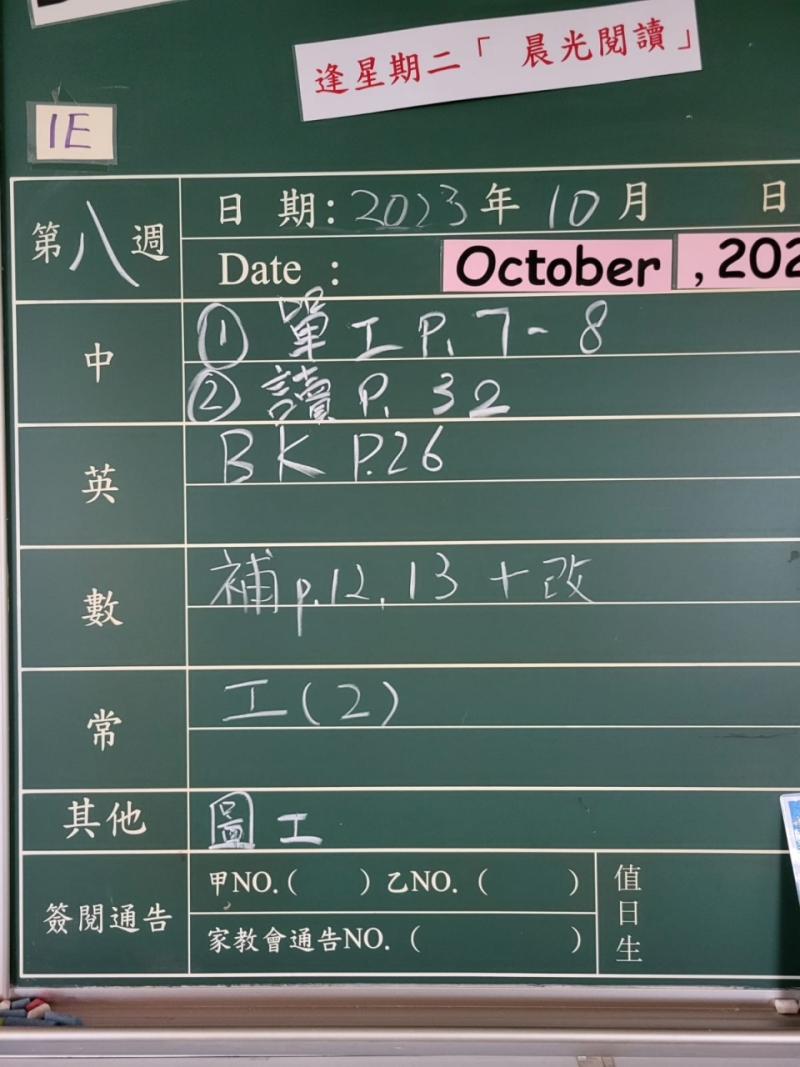 逢星期二「 晨光閱讀」
1E
第八週
日 期: 2023 年 10 月 日
Date : October , 202
中
① 單工 P. 7 - 8
② 讀 P. 32
英
BK P.26
數
補 p.12, 13 + 改
常
工(2)
其他
圖工
簽閱通告
甲NO.( ) 乙NO. ( )
家教會通告NO. ( )
值日生